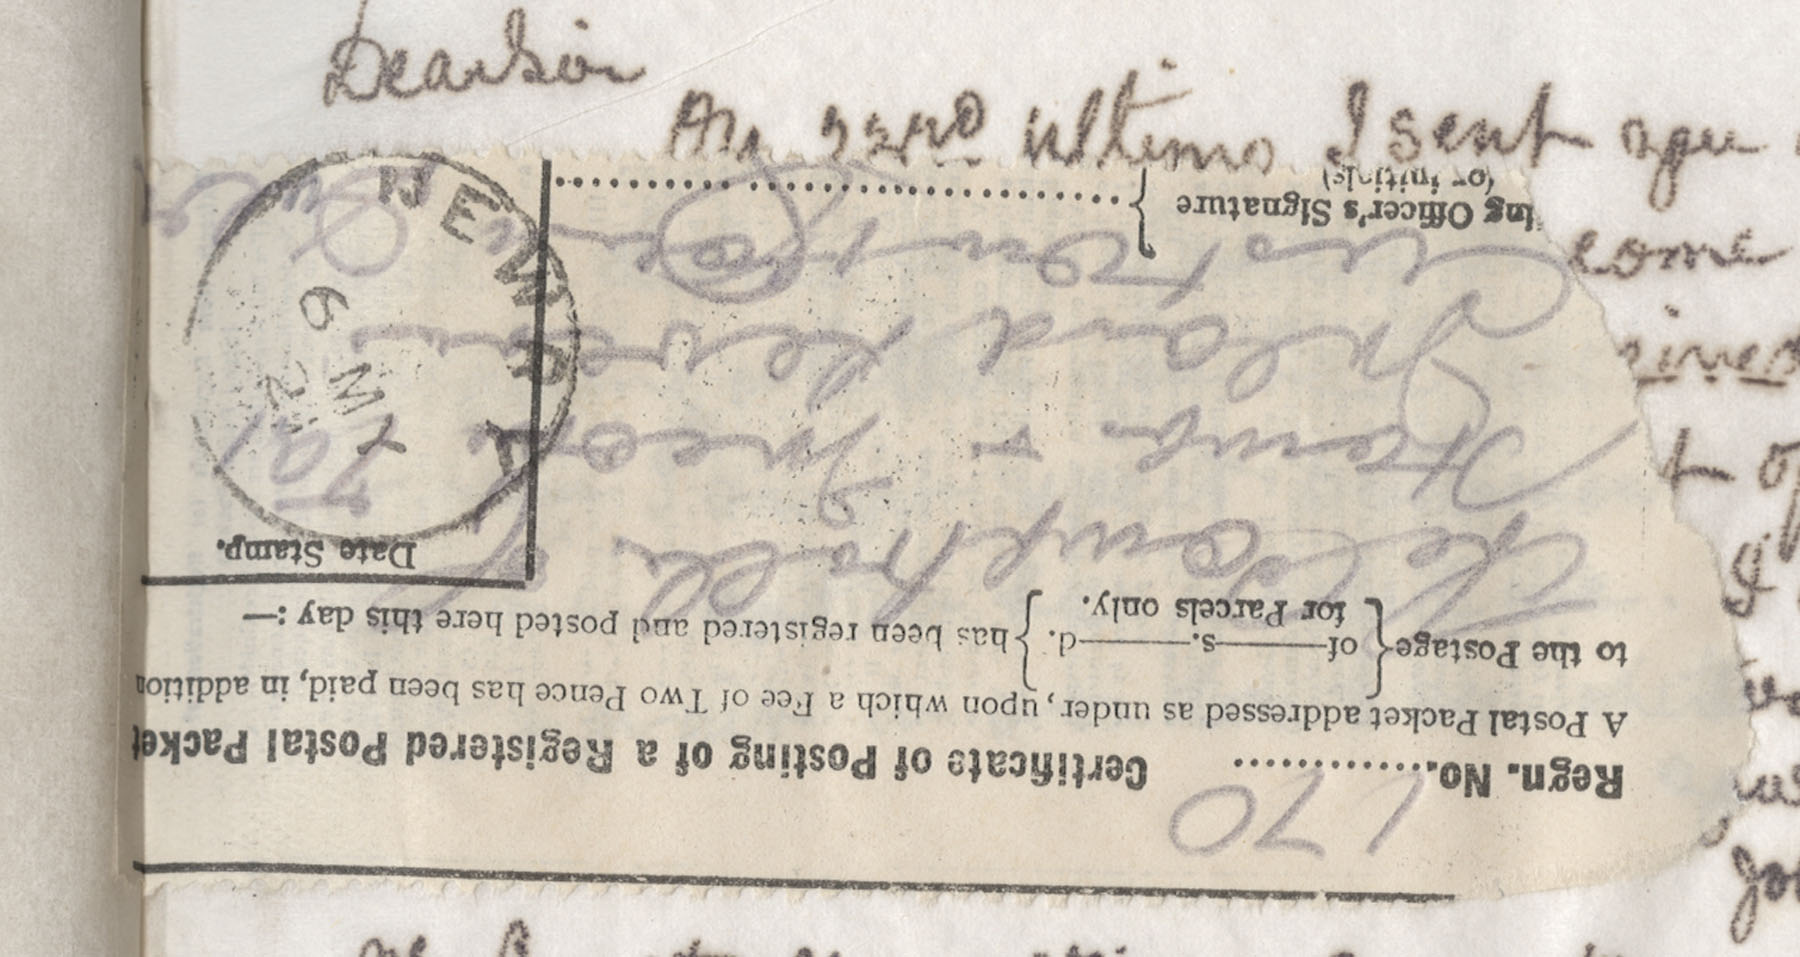 Dear Sir
On 23rd ultimo I sent you
come
Regn. No. 170 Certificate of Posting of a Registered Postal Packet
A Postal Packet addressed as under, upon which a Fee of Two Pence has been paid, in addition
to the Postage { of ——s.——d. for Parcels only. } has been registered and posted here this day :—
Date Stamp.
The Comptroller of
Stamps & Income Tax
Inland Revenue
Custom House
NEWRY
6 MY 2
ing Officer's Signature
(or initials)